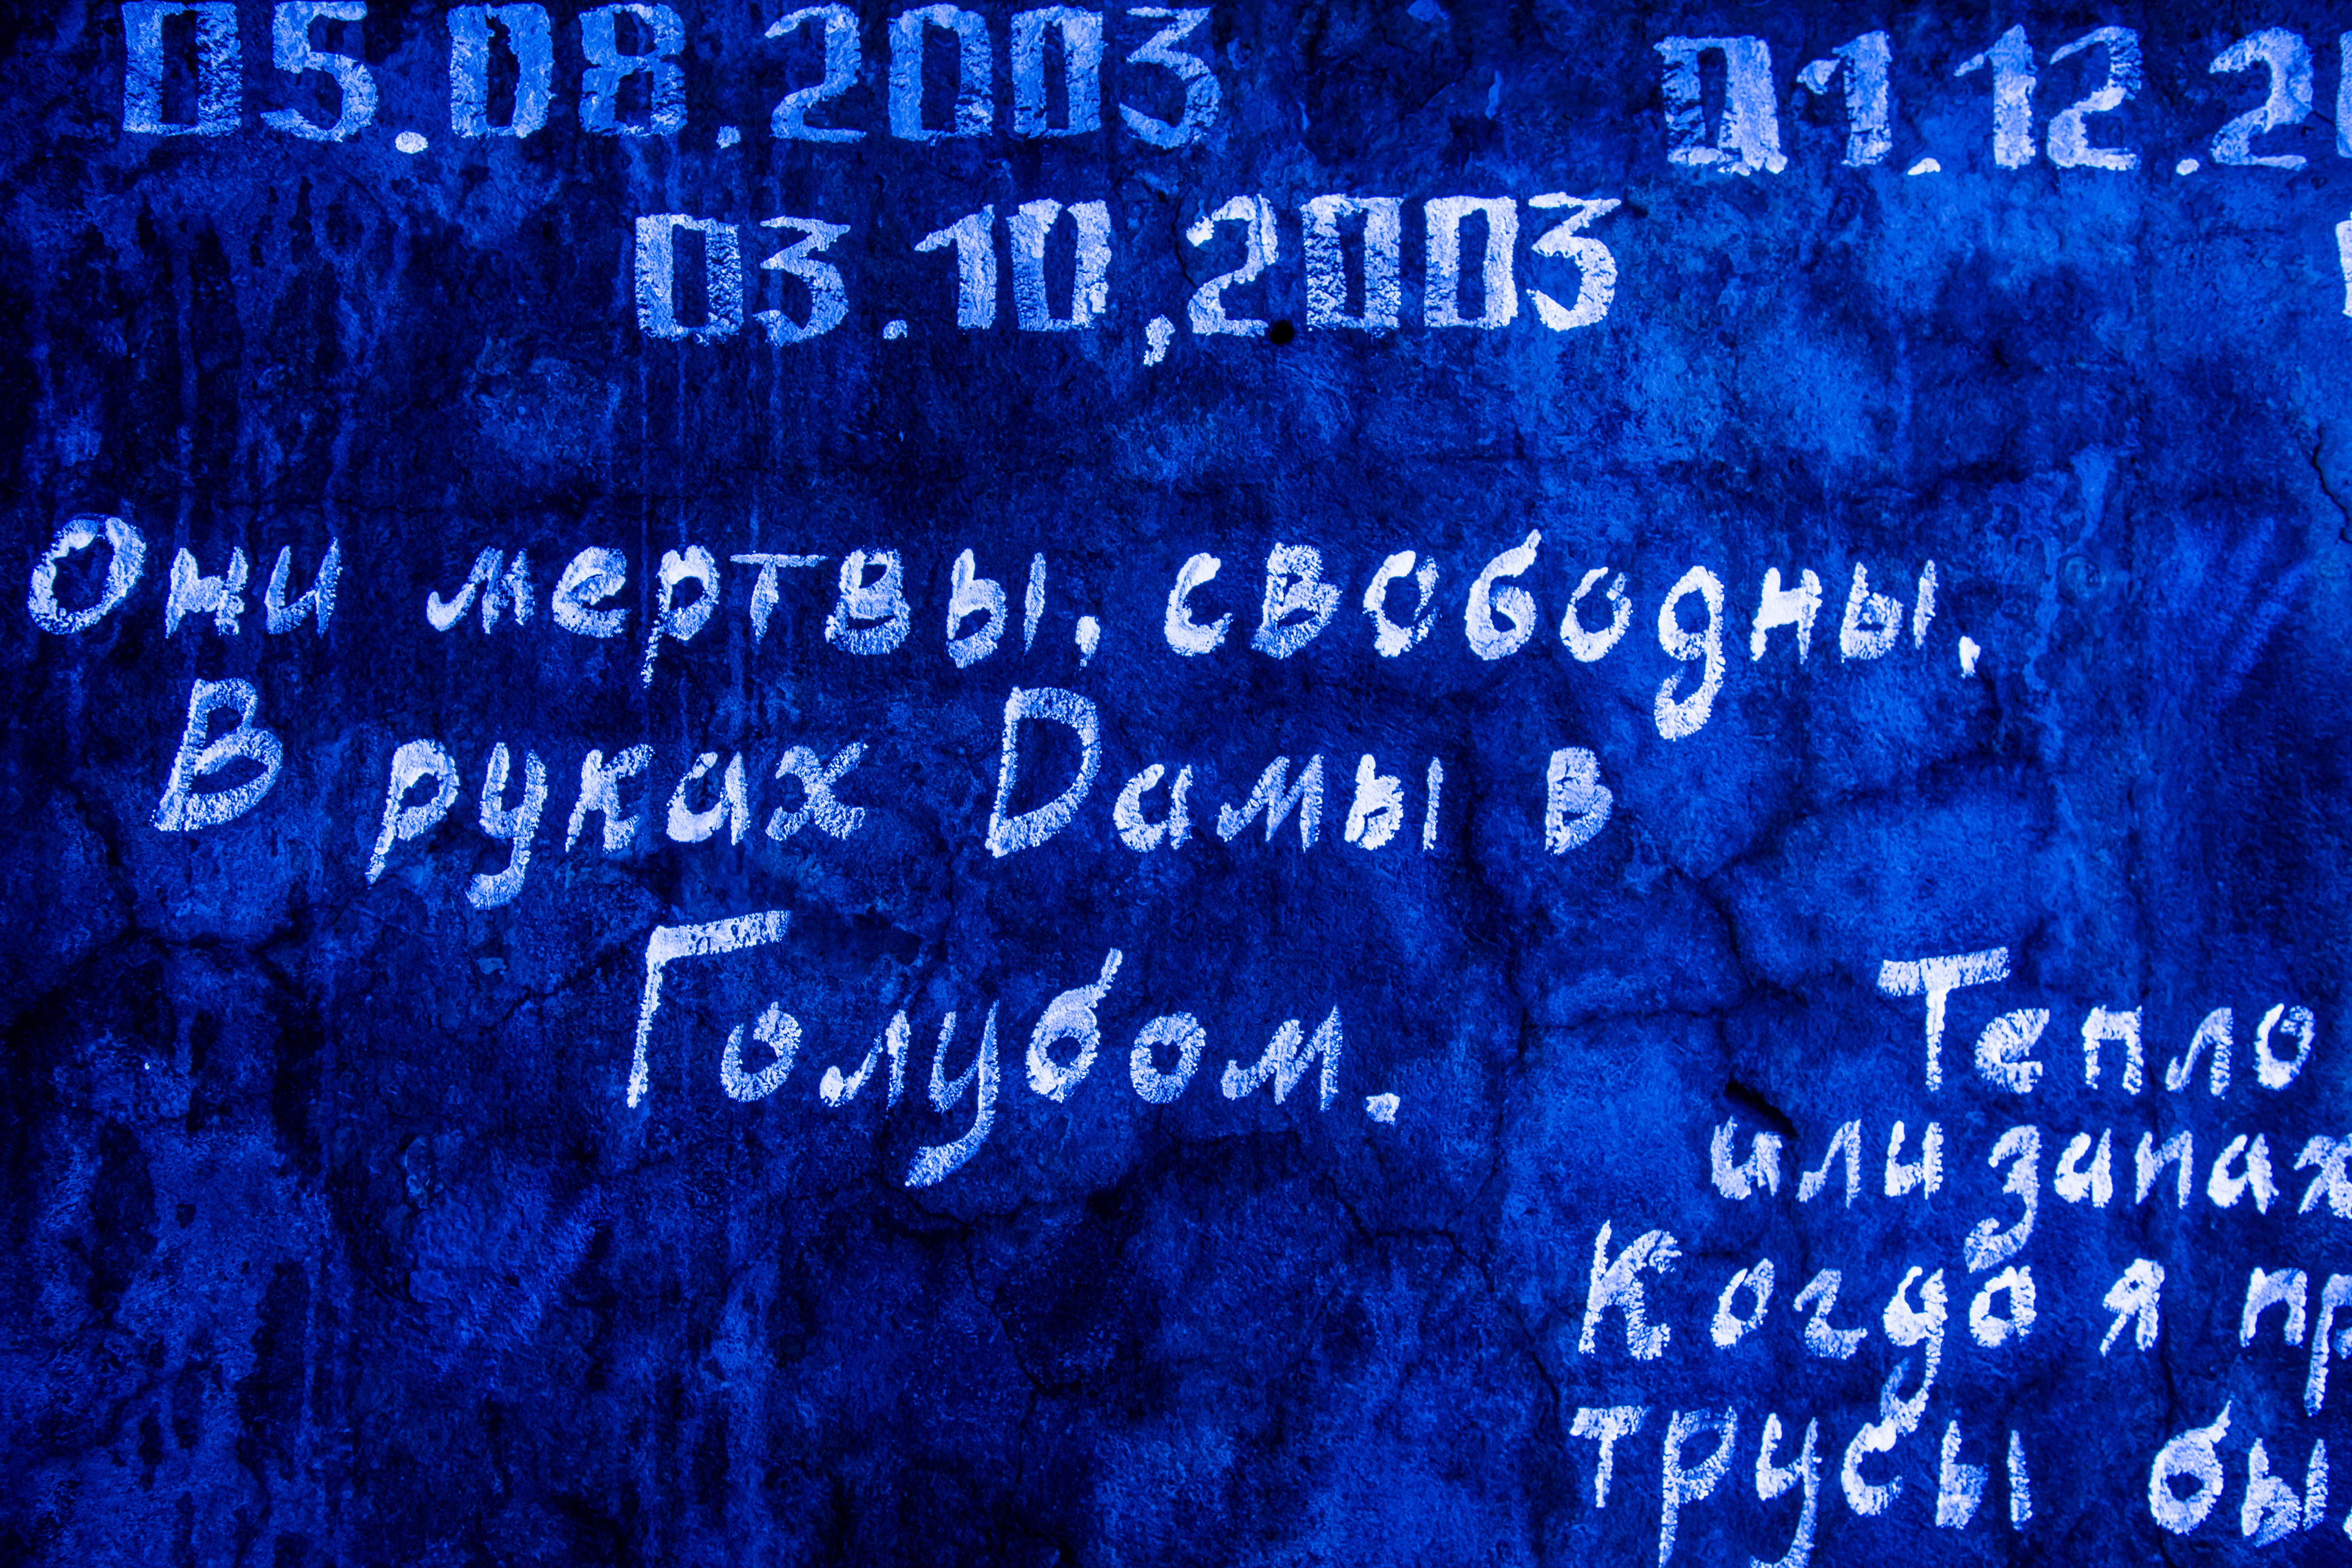 05.08.2003
01.12.2
03.10,2003
Они мертвы, свободны,
В руках Дамы в
Голубом.
Тепло
или запах
Когда я пр
трусы бы